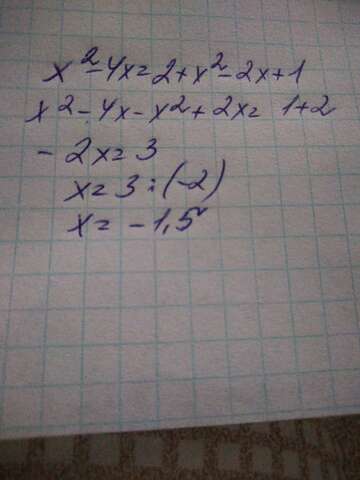 x²-4x=2+x²-2x+1
x²-4x-x²+2x= 1+2
-2x=3
x=3:(-2)
x=-1,5